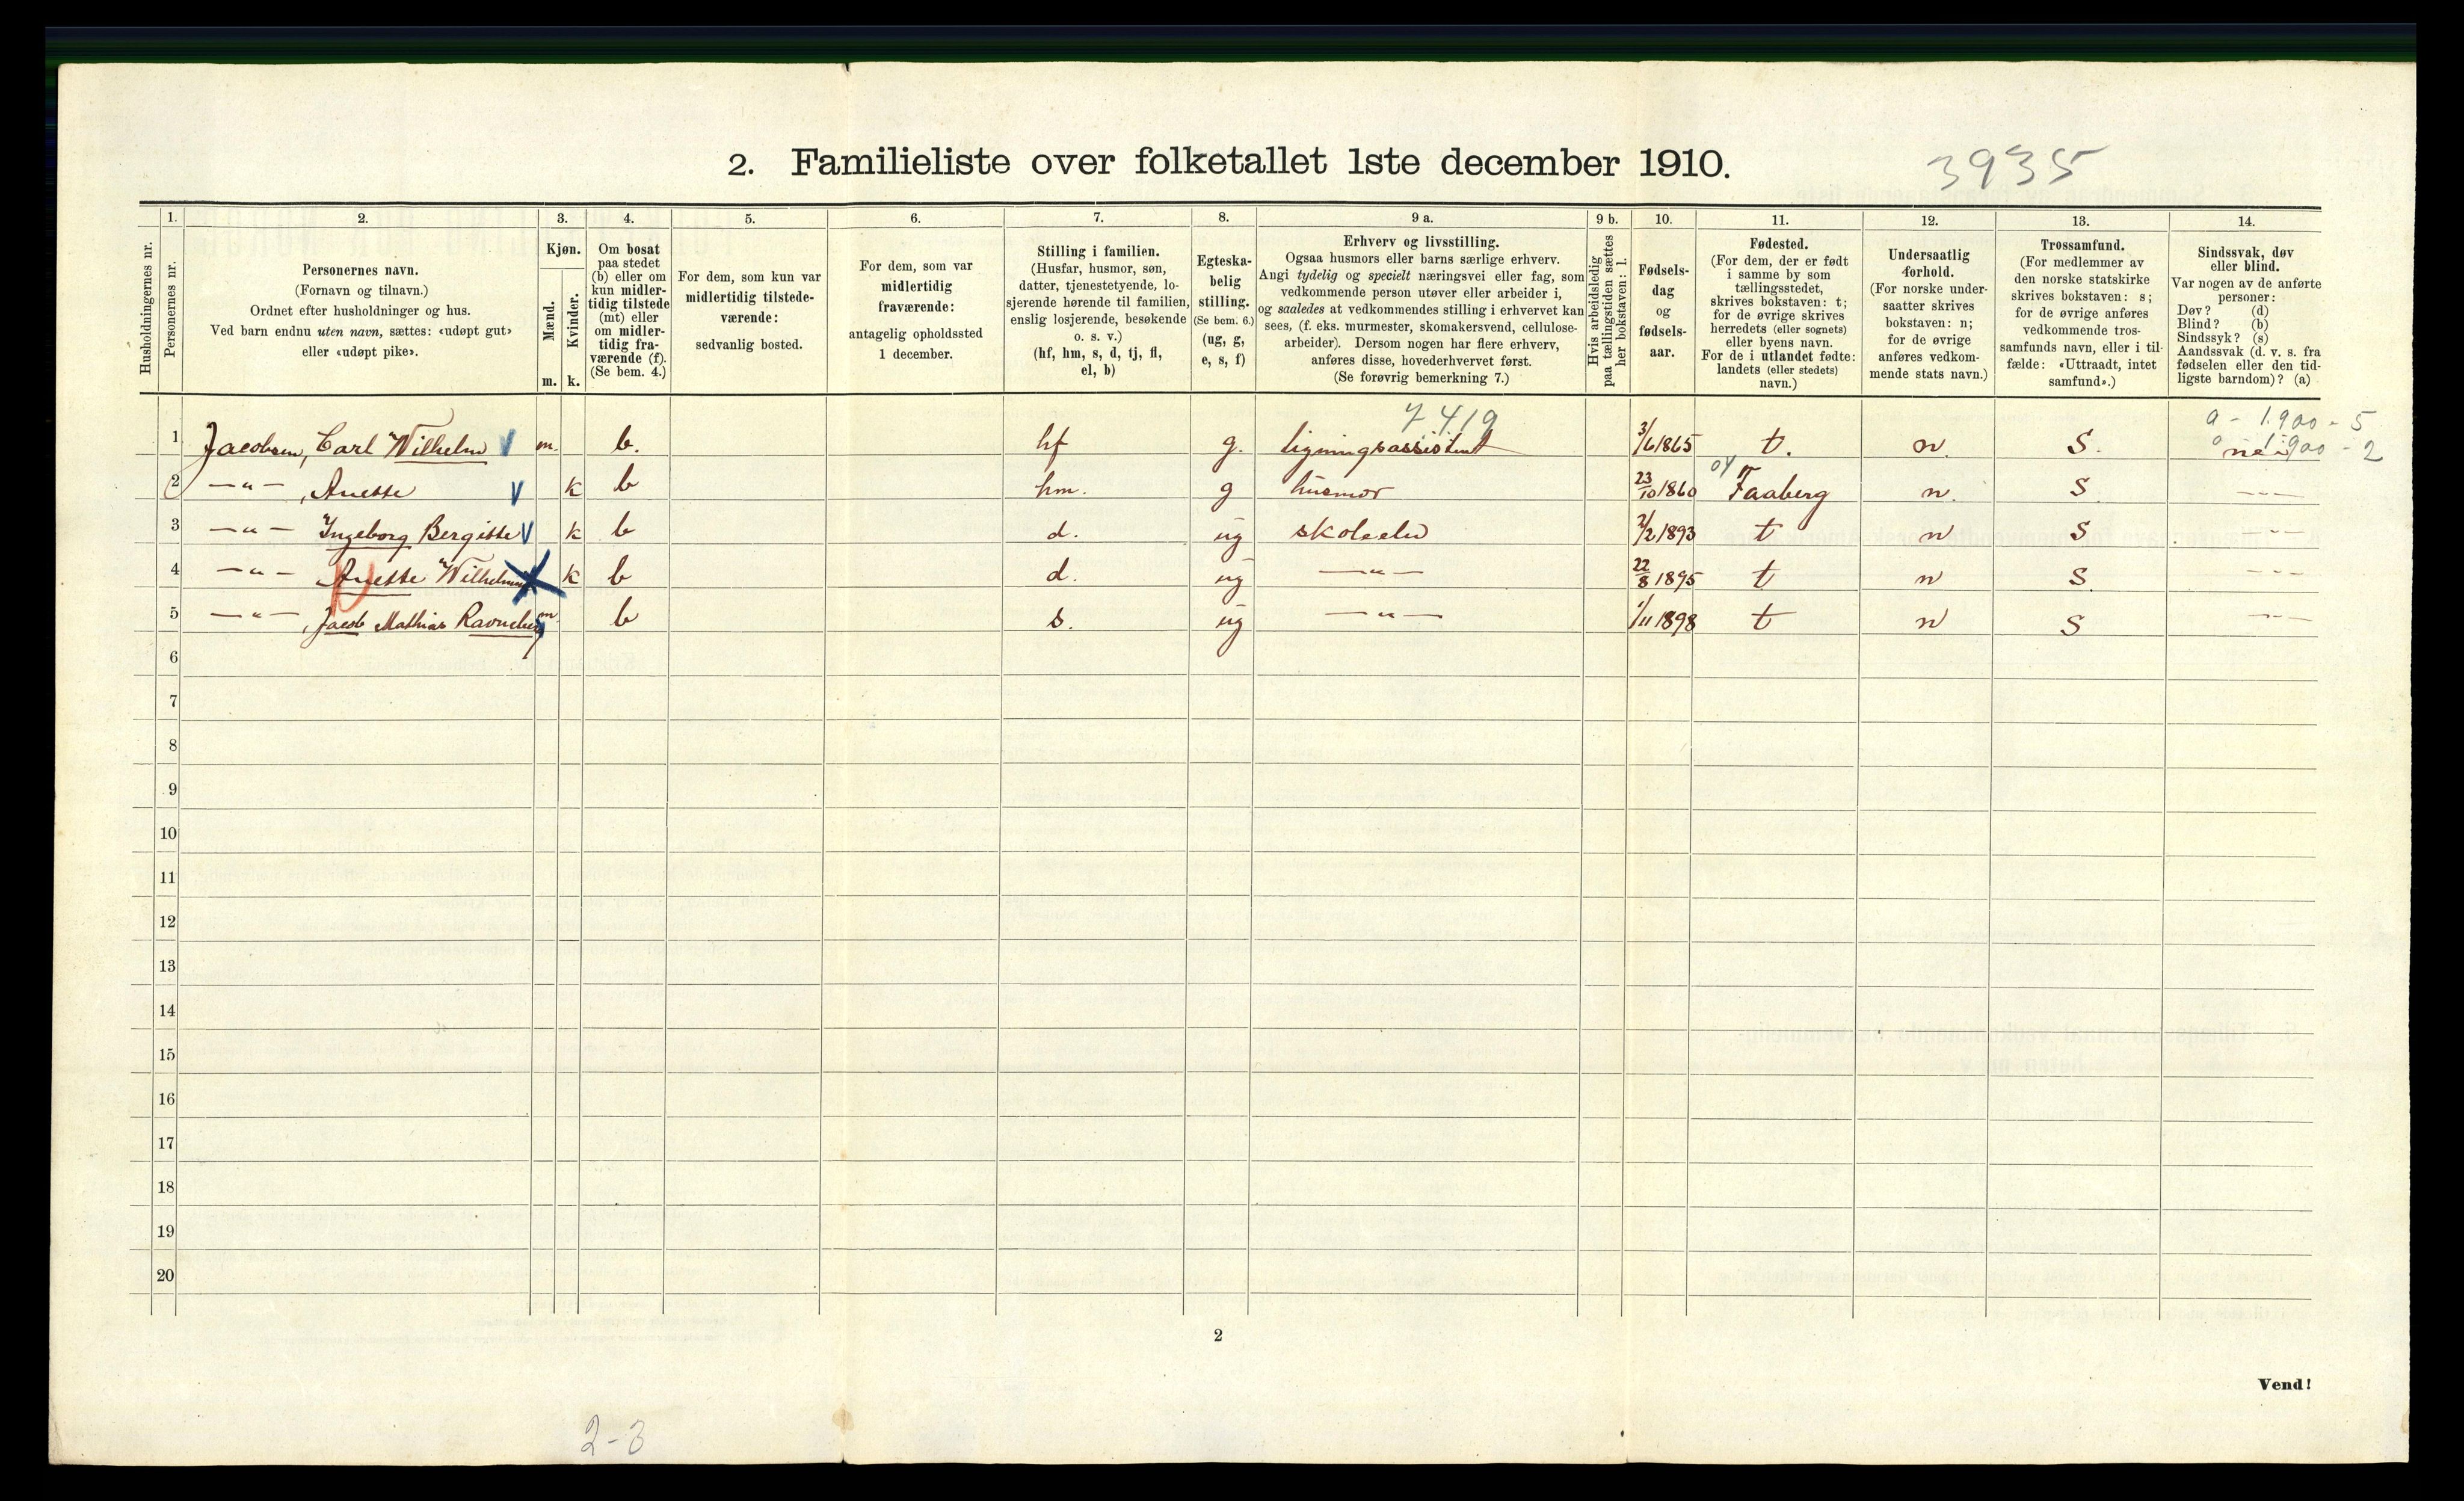 2. Familieliste over folketallet 1ste december 1910.
3935
1. 2. 3. 4. 5. 6. 7. 8. 9 a. 9 b. 10. 11. 12. 13. 14.
Husholdningernes nr.
Personernes nr.
Personernes navn.
(Fornavn og tilnavn.)
Ordnet efter husholdninger og hus.
Ved barn endnu uten navn, sættes: «udøpt gut»
eller «udøpt pike».
Kjøn.
Mænd.
Kvinder.
m. k.
Om bosat
paa stedet
(b) eller om
kun midler-
tidig tilstede
(mt) eller
om midler-
tidig fra-
værende (f).
(Se bem. 4.)
For dem, som kun var
midlertidig tilstede-
værende:
sedvanlig bosted.
For dem, som var
midlertidig
fraværende:
antagelig opholdssted
1 december.
Stilling i familien.
(Husfar, husmor, søn,
datter, tjenestetyende, lo-
sjerende hørende til familien,
enslig losjerende, besøkende
o. s. v.)
(hf, hm, s, d, tj, fl,
el, b)
Egteska-
belig
stilling.
(Se bem. 6.)
(ug, g,
e, s, f)
Erhverv og livsstilling.
Ogsaa husmors eller barns særlige erhverv.
Angi tydelig og specielt næringsvei eller fag, som
vedkommende person utøver eller arbeider i,
og saaledes at vedkommendes stilling i erhvervet kan
sees, (f. eks. murmester, skomakersvend, cellulose-
arbeider). Dersom nogen har flere erhverv,
anføres disse, hovederhvervet først.
(Se forøvrig bemerkning 7.)
Hvis arbeidsledig
paa tællingstiden sættes
her bokstaven: l.
Fødsels-
dag
og
fødsels-
aar.
Fødested.
(For dem, der er født
i samme by som
tællingsstedet,
skrives bokstaven: t;
for de øvrige skrives
herredets (eller sognets)
eller byens navn.
For de i utlandet fødte:
landets (eller stedets)
navn.)
Undersaatlig
forhold.
(For norske under-
saatter skrives
bokstaven: n;
for de øvrige
anføres vedkom-
mende stats navn.)
Trossamfund.
(For medlemmer av
den norske statskirke
skrives bokstaven: s;
for de øvrige anføres
vedkommende tros-
samfunds navn, eller i til-
fælde: «Uttraadt, intet
samfund».)
Sindssvak, døv
eller blind.
Var nogen av de anførte
personer:
Døv? (d)
Blind? (b)
Sindssyk? (s)
Aandssvak (d. v. s. fra
fødselen eller den tid-
ligste barndom)? (a)
7419
a - 1.900 - 5
1900 - 2
1 Jacobsen, Carl Wilhelm m. b. hf g. ligningsassistent 3/6 1865 t. n. S. nei
2 —"— , Anette k b hm. g husmor 23/10 1860 Faaberg n. S —"—
3 —"— Ingeborg Bergitte k b d. ug skoleelev 2/2 1893 t n S —"—
4 —"— Anette Wilhelmine k b d. ug —"— 22/8 1895 t n S. —"—
5 —"— , Jacob Mathias Ravneberg m b s. ug —"— 1/11 1898 t n S —"—
6
7
8
9
10
11
12
13
14
15
16
17
18
19
20
2
Vend!
2-3